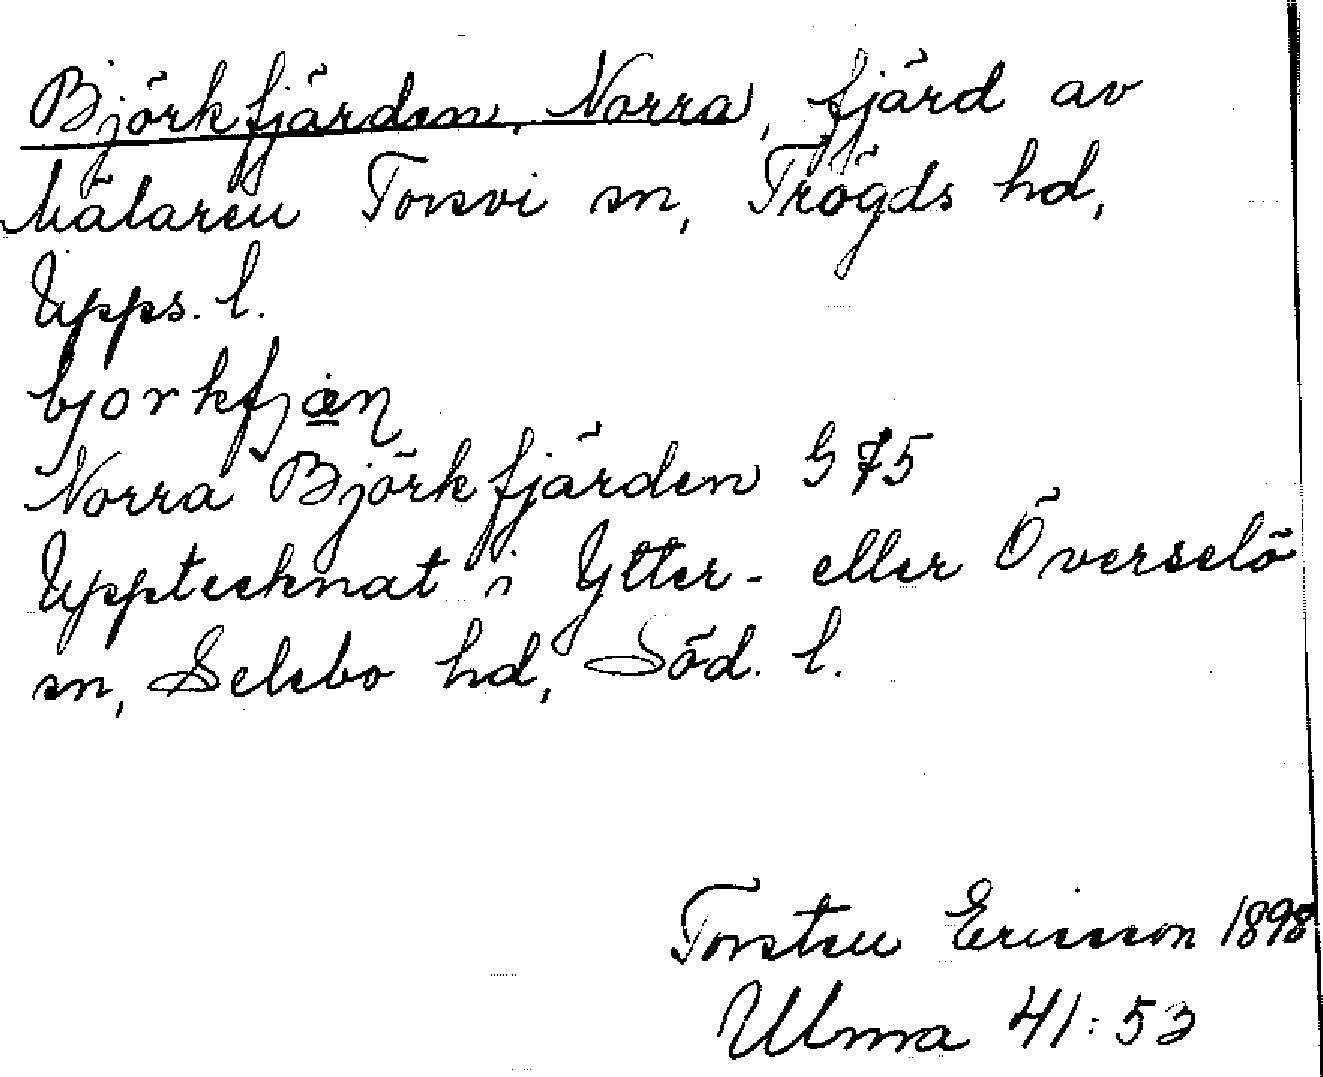 Björkfjärden, Norra, fjärd av
Mälaren Torsvi sn, Trögds hd,
Upps. l.
bjorkfjæn
Norra Björkfjärden G 75
Upptecknat i Ytter- eller Överselö
sn, Selebo hd, Söd. l.
Torsten Ericsson 1898
Ulma 41:53